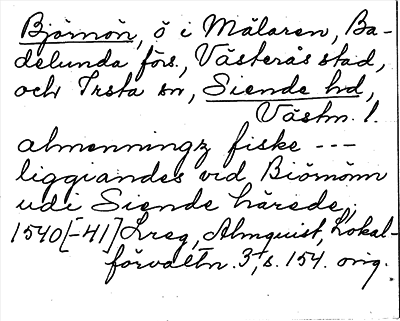 Björnön, ö i Mälaren, Ba-
delunda förs., Västerås stad,
och Irsta sn, Siende hd,
Västm. l.
almenningz fiske ---
liggiandes vid Biömöm
udi Siende härede,
1540[-41] Lreg, Almquist, Lokal-
förvaltn. 3+, s. 154. orig.